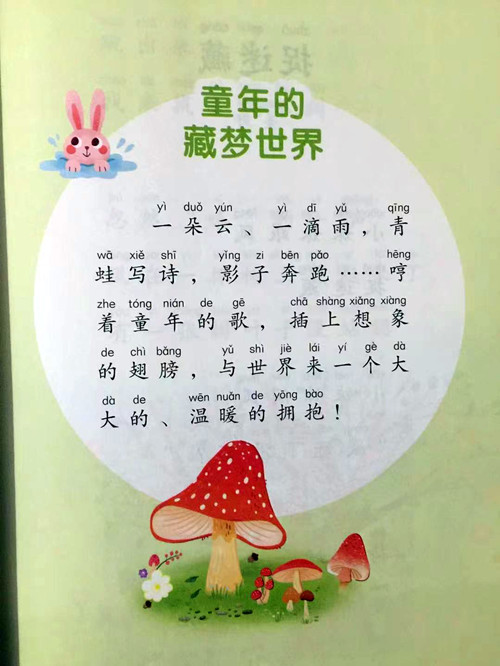 童年的
藏梦世界
yì duǒ yún yì dī yǔ qīng
一朵云、一滴雨，青
wā xiě shī yǐng zi bēn pǎo hēng
蛙写诗，影子奔跑……哼
zhe tóng nián de gē chā shàng xiǎng xiàng
着童年的歌，插上想象
de chì bǎng yǔ shì jiè lái yí gè dà
的翅膀，与世界来一个大
dà de wēn nuǎn de yōng bào
大的、温暖的拥抱！